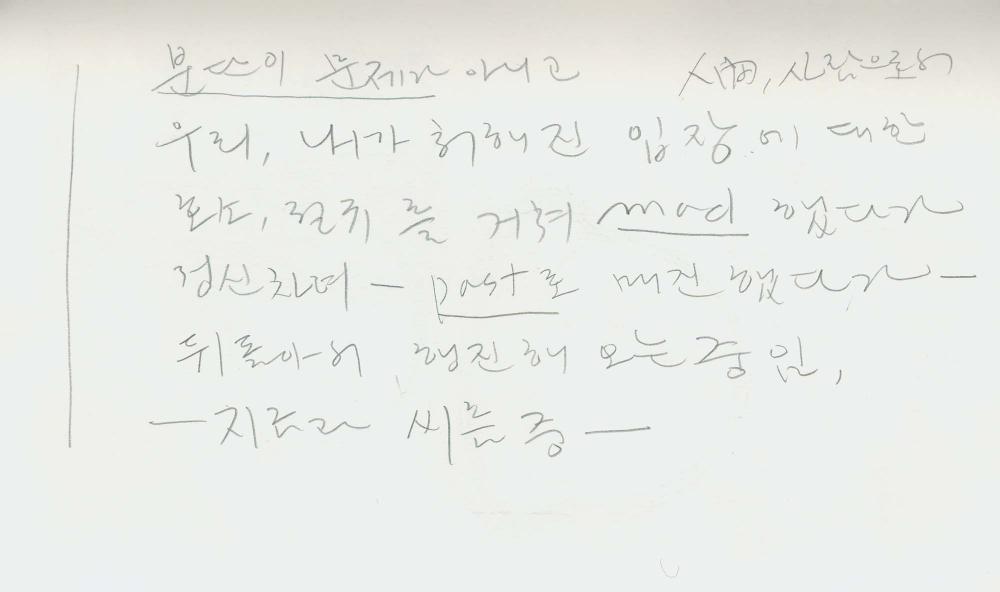 분단이 문제가 아니고 人間, 사람으로서
우리, 내가 취해진 입장에 대한
회노, 절취를 거쳐 mad 했다가
정신차려 — past로 매진했다가 —
뒤돌아서 행진해 오는중임,
— 치료와 씨름중 —